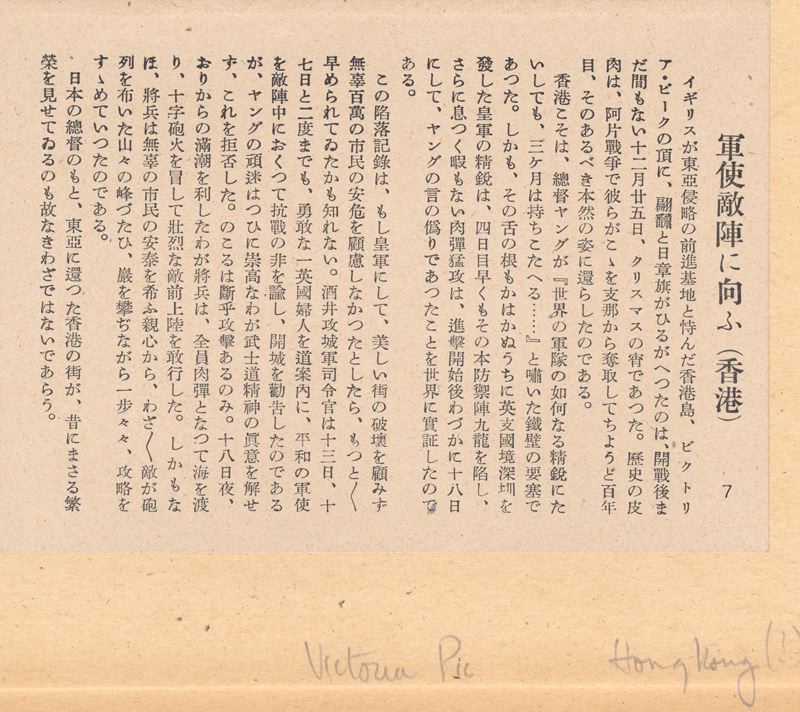 軍使敵陣に向ふ（香港）
7
イギリスが東亞侵略の前進基地と恃んだ香港島、ビクトリ
ア・ピークの頂に、翩飜と日章旗がひるがへつたのは、開戰後ま
だ間もない十二月廿五日、クリスマスの宵であつた。歴史の皮
肉は、阿片戰爭で彼らがこゝを支那から奪取してちようど百年
目、そのあるべき本然の姿に還らしたのである。
香港こそは、總督ヤングが『世界の軍隊の如何なる精鋭にた
いしても、三ケ月は持ちこたへる……』と嘯いた鐵壁の要塞で
あつた。しかも、その舌の根もかはかぬうちに英支國境深圳を
發した皇軍の精鋭は、四日目早くもその本防禦陣九龍を陷し、
さらに息つく暇もない肉彈猛攻は、進擊開始後わづかに十八日
にして、ヤングの言の僞りであつたことを世界に實証したので
ある。
この陷落記錄は、もし皇軍にして、美しい街の破壞を顧みず
無辜百萬の市民の安危を顧慮しなかつたとしたら、もつと〳〵
早められてゐたかも知れない。酒井攻城軍司令官は十三日、十
七日と二度までも、勇敢な一英國婦人を道案內に、平和の軍使
を敵陣中におくつて抗戰の非を諭し、開城を勸告したのである
が、ヤングの頑迷はつひに崇高なわが武士道精神の眞意を解せ
ず、これを拒否した。のこるは斷乎攻擊あるのみ。十八日夜、
おりからの滿潮を利したわが將兵は、全員肉彈となつて海を渡
り、十字砲火を冒して壯烈な敵前上陸を敢行した。しかもな
ほ、將兵は無辜の市民の安泰を希ふ親心から、わざ〳〵敵が砲
列を布いた山々の峰づたひ、巖を攀ぢながら一步々々、攻略を
すゝめていつたのである。
日本の總督のもと、東亞に還つた香港の街が、昔にまさる繁
榮を見せてゐるのも故なきわざではないであらう。
Victoria Pic
Hong Kong (!)